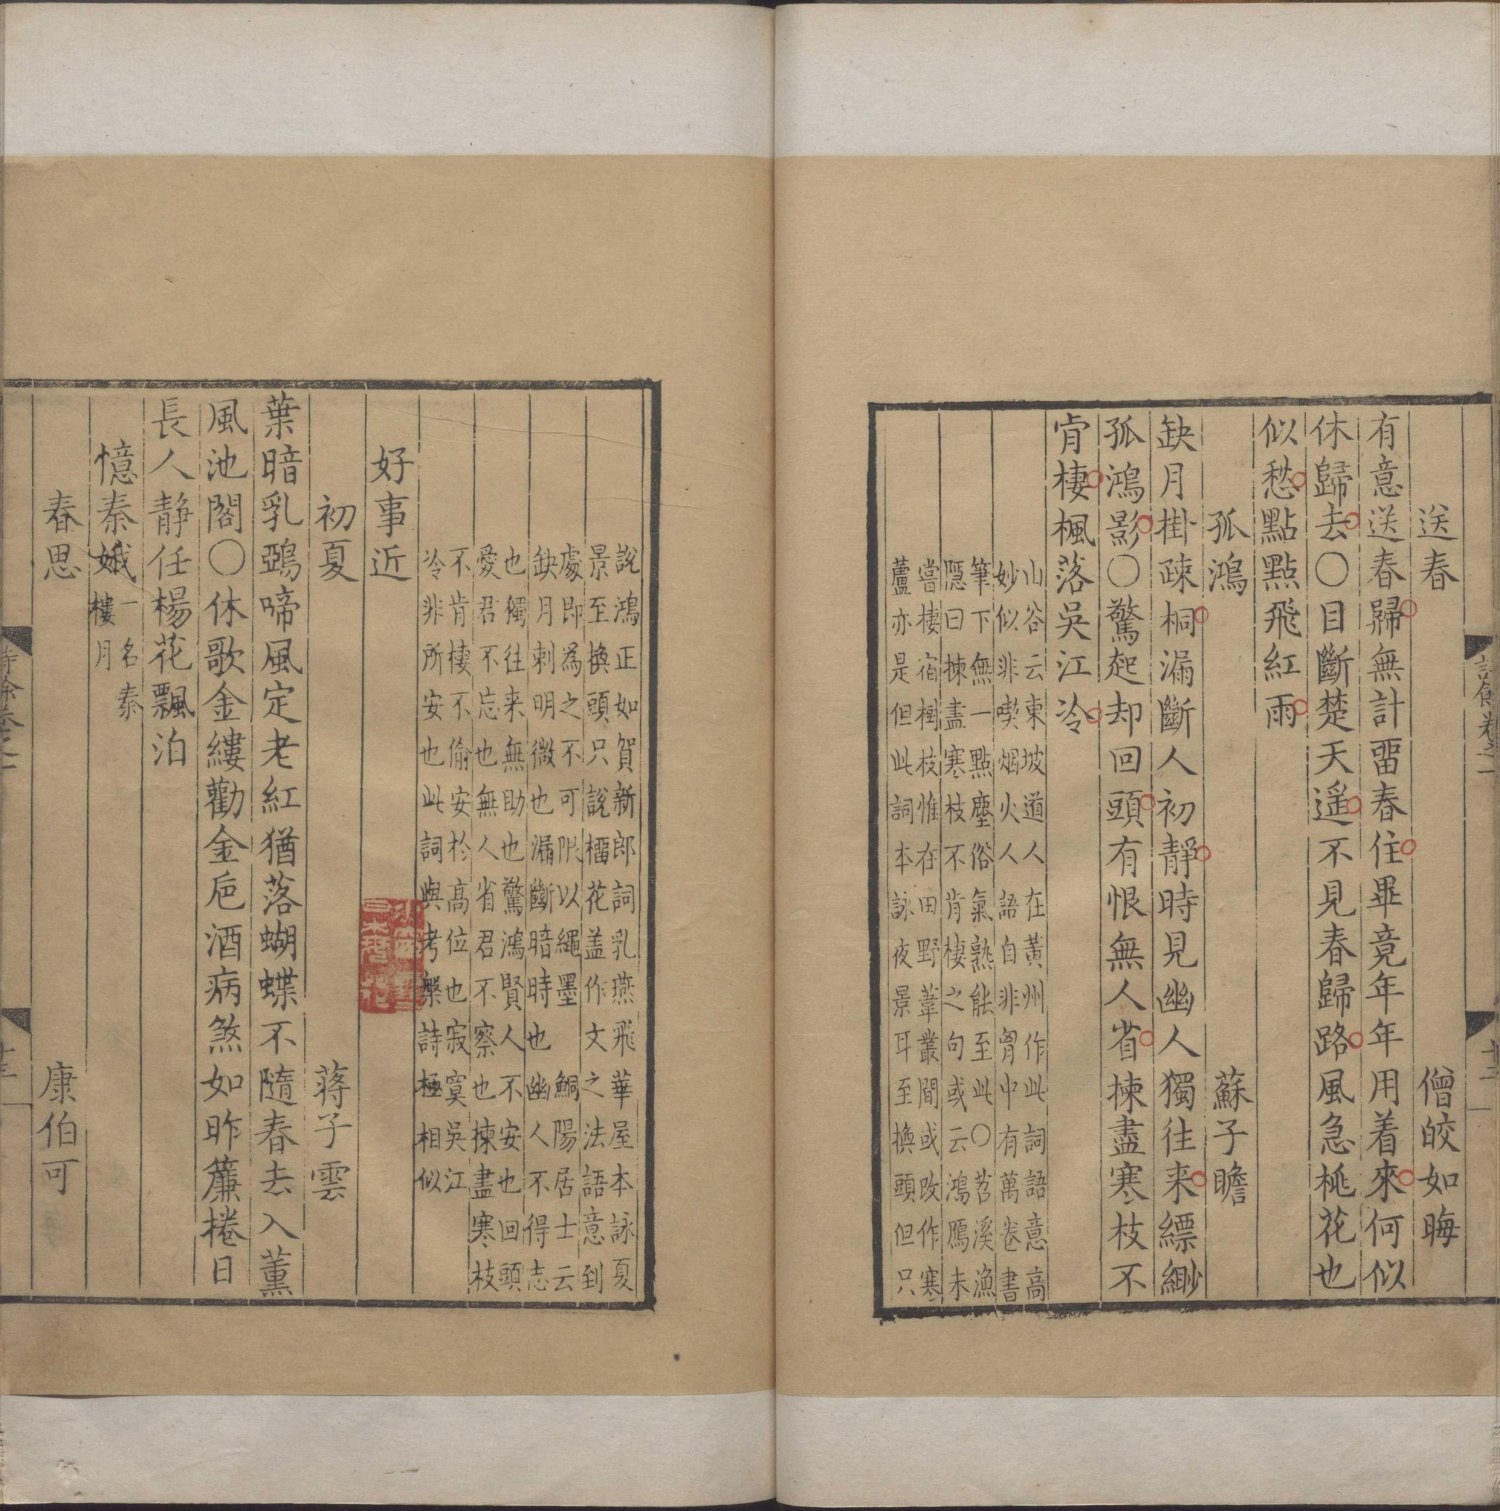 送春　僧皎如晦
有意送春歸無計畱春住畢竟年年用着來何似
休歸去〇目斷楚天遥不見春歸路風急桃花也
似愁點點飛紅雨
孤鴻　蘇子瞻
缺月掛疎桐漏斷人初靜時見幽人獨往来縹緲
孤鴻影〇驚起却回頭有恨無人省揀盡寒枝不
肯棲楓落吳江冷
山谷云東坡道人在黃州作此詞語意高
妙似非喫烟火人語自非胷中有萬卷書
筆下無一點塵俗氣熟能至此〇苕溪漁
隱曰揀盡寒枝不肯棲之句或云鴻鴈未
嘗棲宿樹枝惟在田野葦叢間或改作寒
蘆亦是但此詞本詠夜景耳至換頭但只
說鴻正如賀新郎詞乳燕飛華屋本詠夏
景至換頭只說橊花盖作文之法語意到
處即為之不可限以繩墨　鮦陽居士云
缺月刺明微也漏斷暗時也幽人不得志
也獨往来無助也驚鴻賢人不安也回頭
愛君不忘也無人省君不察也揀盡寒枝
不肯棲不偷安於高位也寂寞吳江
冷非所安也此詞與考槃詩極相似
好事近
初夏　蒋子雲
葉暗乳鵶啼風定老紅猶落蝴蝶不隨春去入薰
風池閣〇休歌金縷勸金巵酒病煞如昨簾捲日
長人静任楊花飄泊
憶秦娥一名秦樓月
春思　康伯可